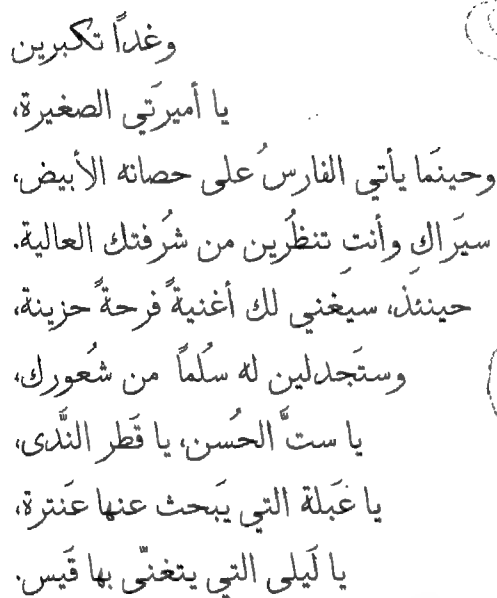 وغداً تكبرين
يا أميرَتي الصغيرة،
وحينَما يأتي الفارسُ على حصانه الأبيض،
سيَراكِ وأنتِ تنظُرين من شُرفتك العالية.
حينئذْ، سيغني لك أغنيةً فرحةً حزينة،
وستَجدلين له سُلماً من شُعورك،
يا ستَّ الحُسن، يا قَطر النَّدى،
يا غَبلة التي يَبحث عنها عَنترة،
يا لَيلى التي يتغنّى بها قَيس.